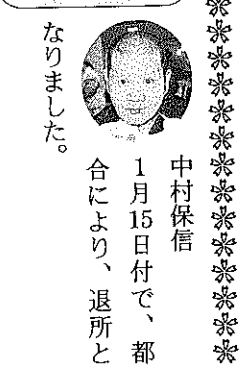 中村保信
1月15日付で、都
合により、退所と
なりました。